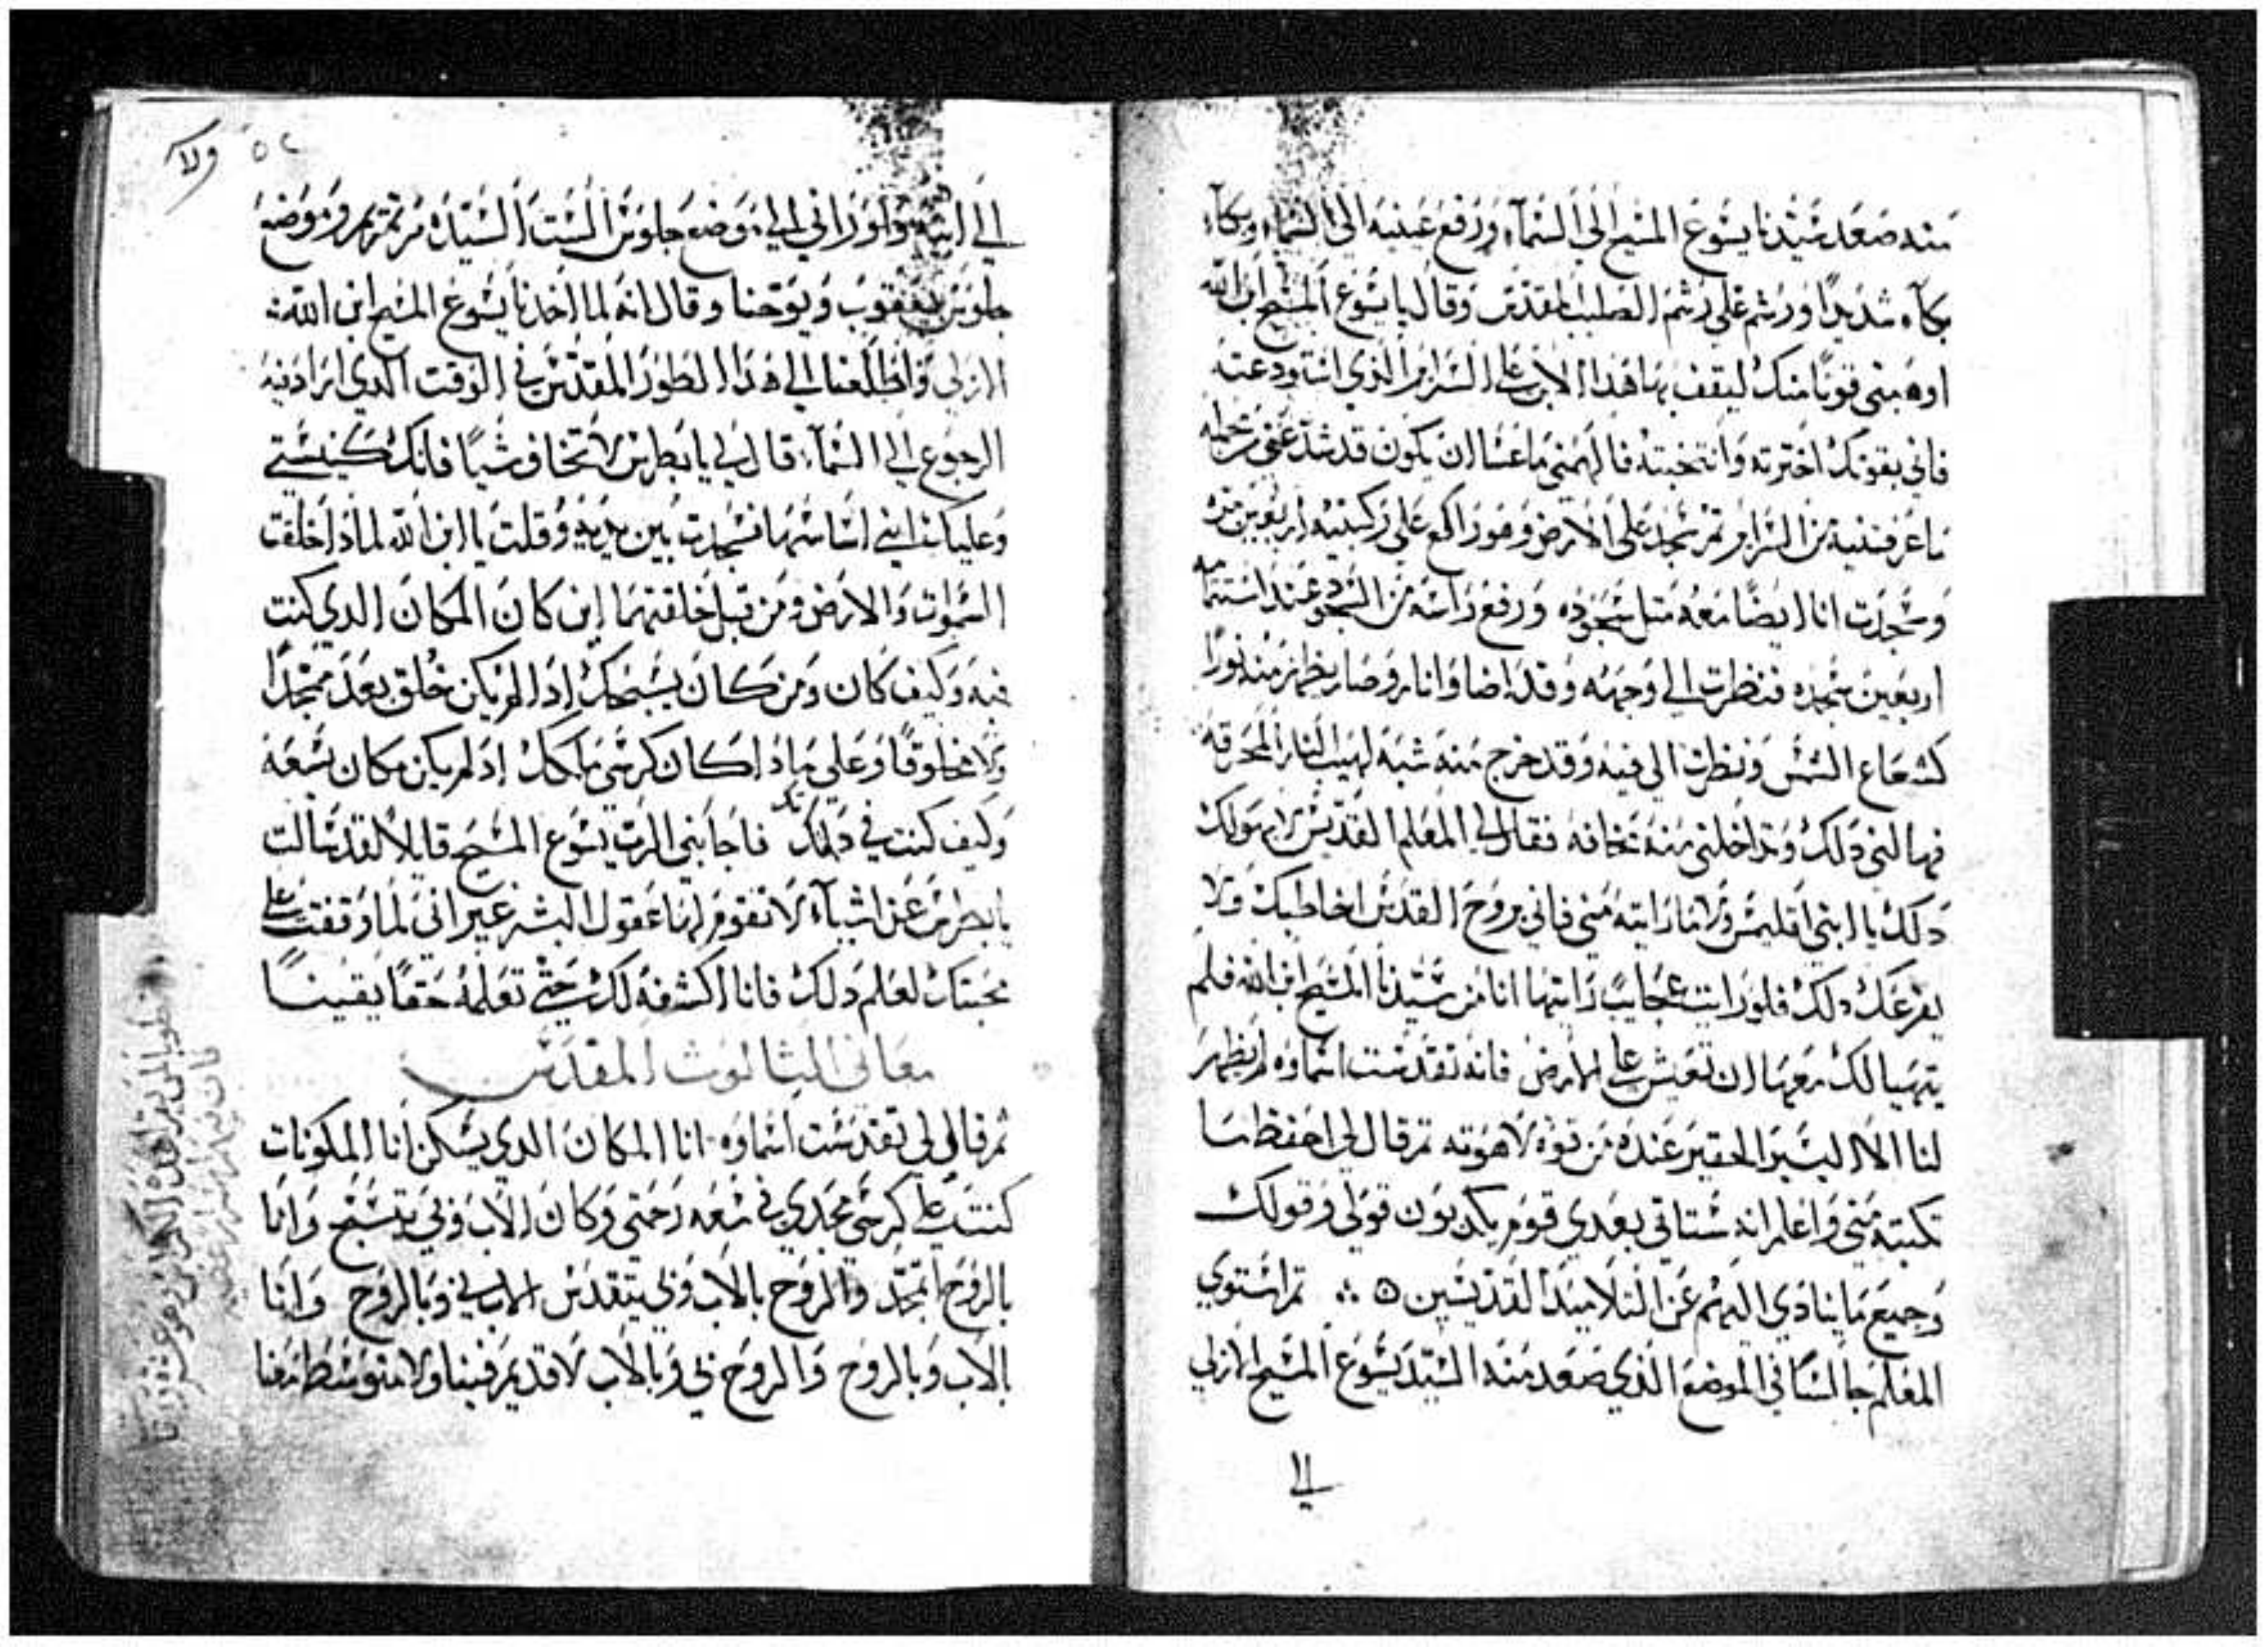 منه صعد سيدنا يسوع المسيح الى السمآء ورفع عينيه الى السمآء وبكآ
بكآء شديدًا ورشم على رشم الصليب المقدس وقال يا يسوع المسيح ابن الله
اوهبني قوتًا منك ليقف بها هذا الابن على السراير الذي استودعته
فاني بقوتك اخترته وانتخبته فالهمني ما عسا ان يكون قد شد عني من جمله
ما عرفتنيه من السراير ثم سجد على الارض وهو راكع على ركبتيه اربعين مره
وسجدت انا ايضًا معه مثل سجوده ورفع راسه من السجود عند استتمامه
اربعين سجده فنظرت الى وجهه وقد اضا وانار وصار يخرج منه نورًا
كشعاع الشمس ونظرت الى فيه وقد خرج منه شبه لهيب النار المحرقه
فهالني دلك وتداخلني منه مخافه فقال لي المعلم القديس لا يهولك
دلك يا ابني اقليمس ولا ما رايته مني فاني بروح القدس اخاطبك ولا
يفزعك دلك فلو رايت عجايب رايتها انا من سيدنا المسيح ابن الله فلم
يتهيا لك معها ان تعيش على الارض فانه تقدست اسماوه لم يظهر
لنا الا اليسير الحقير عنده من قوة لاهوته ثم قال لي احفظ ما
تكتبه مني واعلم انه ستاتي بعدي قوم يكدبون قولي وقولك
وجميع ما ينادي اليهم عن التلاميد القديسين ۞ ثم استوي
المعلم جالسًا في الموضع الذي صعد منه السيد يسوع المسيح الازلي
الي
ولا ٥٢
الي ابيه ولوراني الي موضع جلوس الست السيده مرتمريم وموضع
جلوس يعقوب ويوحنا وقال انه لما اخدنا يسوع المسيح ابن الله
الازلي واطلعنا الي هدا الطور المقدس في الوقت الدي اراد فيه
الرجوع الي السمآء قال لي يا بطرس لا تخاف شيًا فانك كنيستي
وعليك ابني اساسها فسجدت بين يديه وقلت يا ابن الله لمادا خلقت
السموات والارض ومن قبل خلقتهما اين كان المكان الدي كنت
فيه وكيف كان ومن كان يسبحك ادا لم يكن خلق بعد ممجدًا
ولا مخلوقًا وعلى مادا كان كرسي ملكك اد لم يكن مكان يسعه
وكيف كنت في دلك فاجابني الرب يسوع المسيح قايلًا لقد سالت
يا بطرس عن اشيآء لا تقوم لها عقول البشر غير اني لما وقفت على
محبتك لعلم دلك فانا اكشفه لك حتى تعلمه حقًا يقينًا
معاني الثالوث المقدس
ثم قال لي تقدست اسماوه انا المكان الدي يسكن انا المكونات
كنت على كرسي مجدي في سعه رحمتي وكان الاب وبي يتسبح وانا
بالروح اتمجد والروح بالاب وبي يتقدس الاب بي وبالروح وانا
بالاب وبالروح والروح بي وبالاب لا قديم فينا ولا متوسط معنا